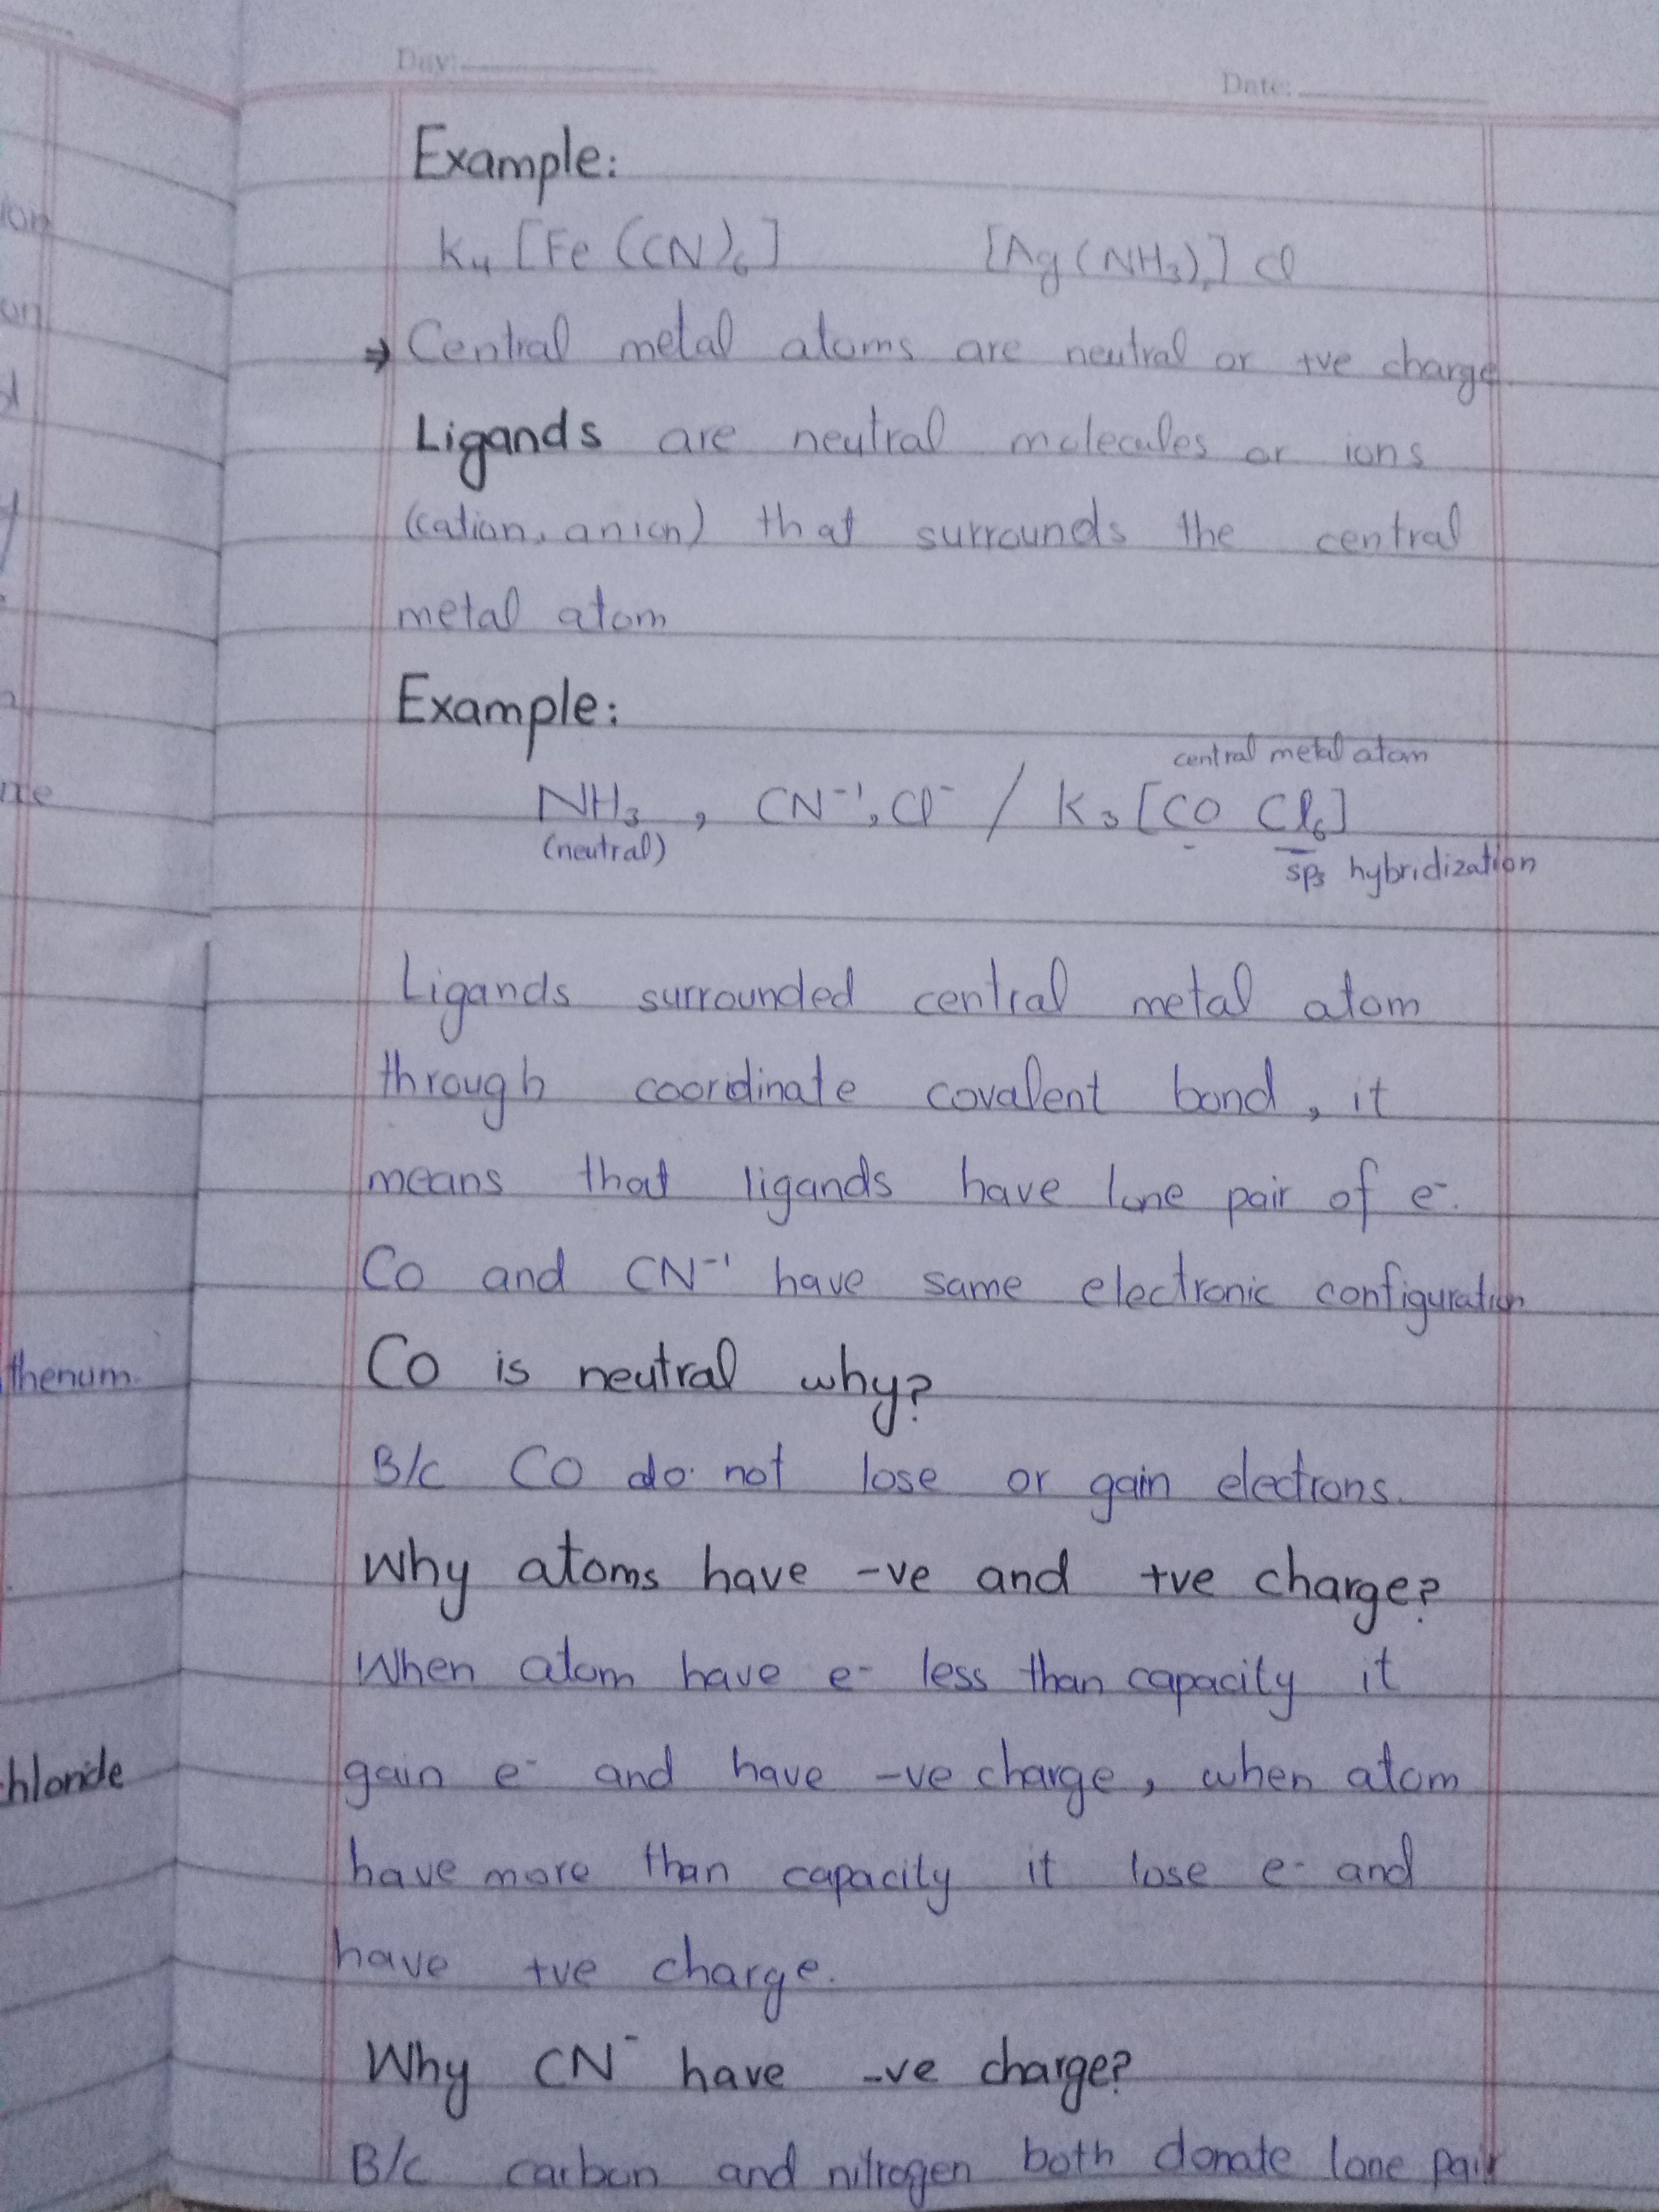 Day:
Date:
Example:
K₄ [Fe (CN)₆] [Ag (NH₃)₂] Cl
→ Central metal atoms are neutral or +ve charge
Ligands are neutral molecules or ions
(cation, anion) that surrounds the central
metal atom
Example:
central metal atom
NH₃, CN⁻¹, Cl⁻ / K₃ [CO Cl₆]
(neutral)
sp₃ hybridization
Ligands surrounded central metal atom
through cooridinate covalent bond, it
means that ligands have lone pair of e⁻.
Co and CN⁻¹ have same electronic configuration
Co is neutral why?
B/c CO do not lose or gain electrons.
Why atoms have -ve and +ve charge?
When atom have e⁻ less than capacity it
gain e⁻ and have -ve charge, when atom
have more than capacity it lose e⁻ and
have +ve charge.
Why CN⁻ have -ve charge?
B/c carbon and nitrogen both donate lone pair
thenum.
hloride